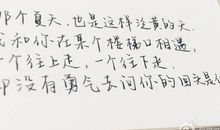 那个夏天,也是这样泛黄的天.
我和你在某个楼梯口相遇,
一个往上走,一个往下走.
却没有勇气去问你的回头是